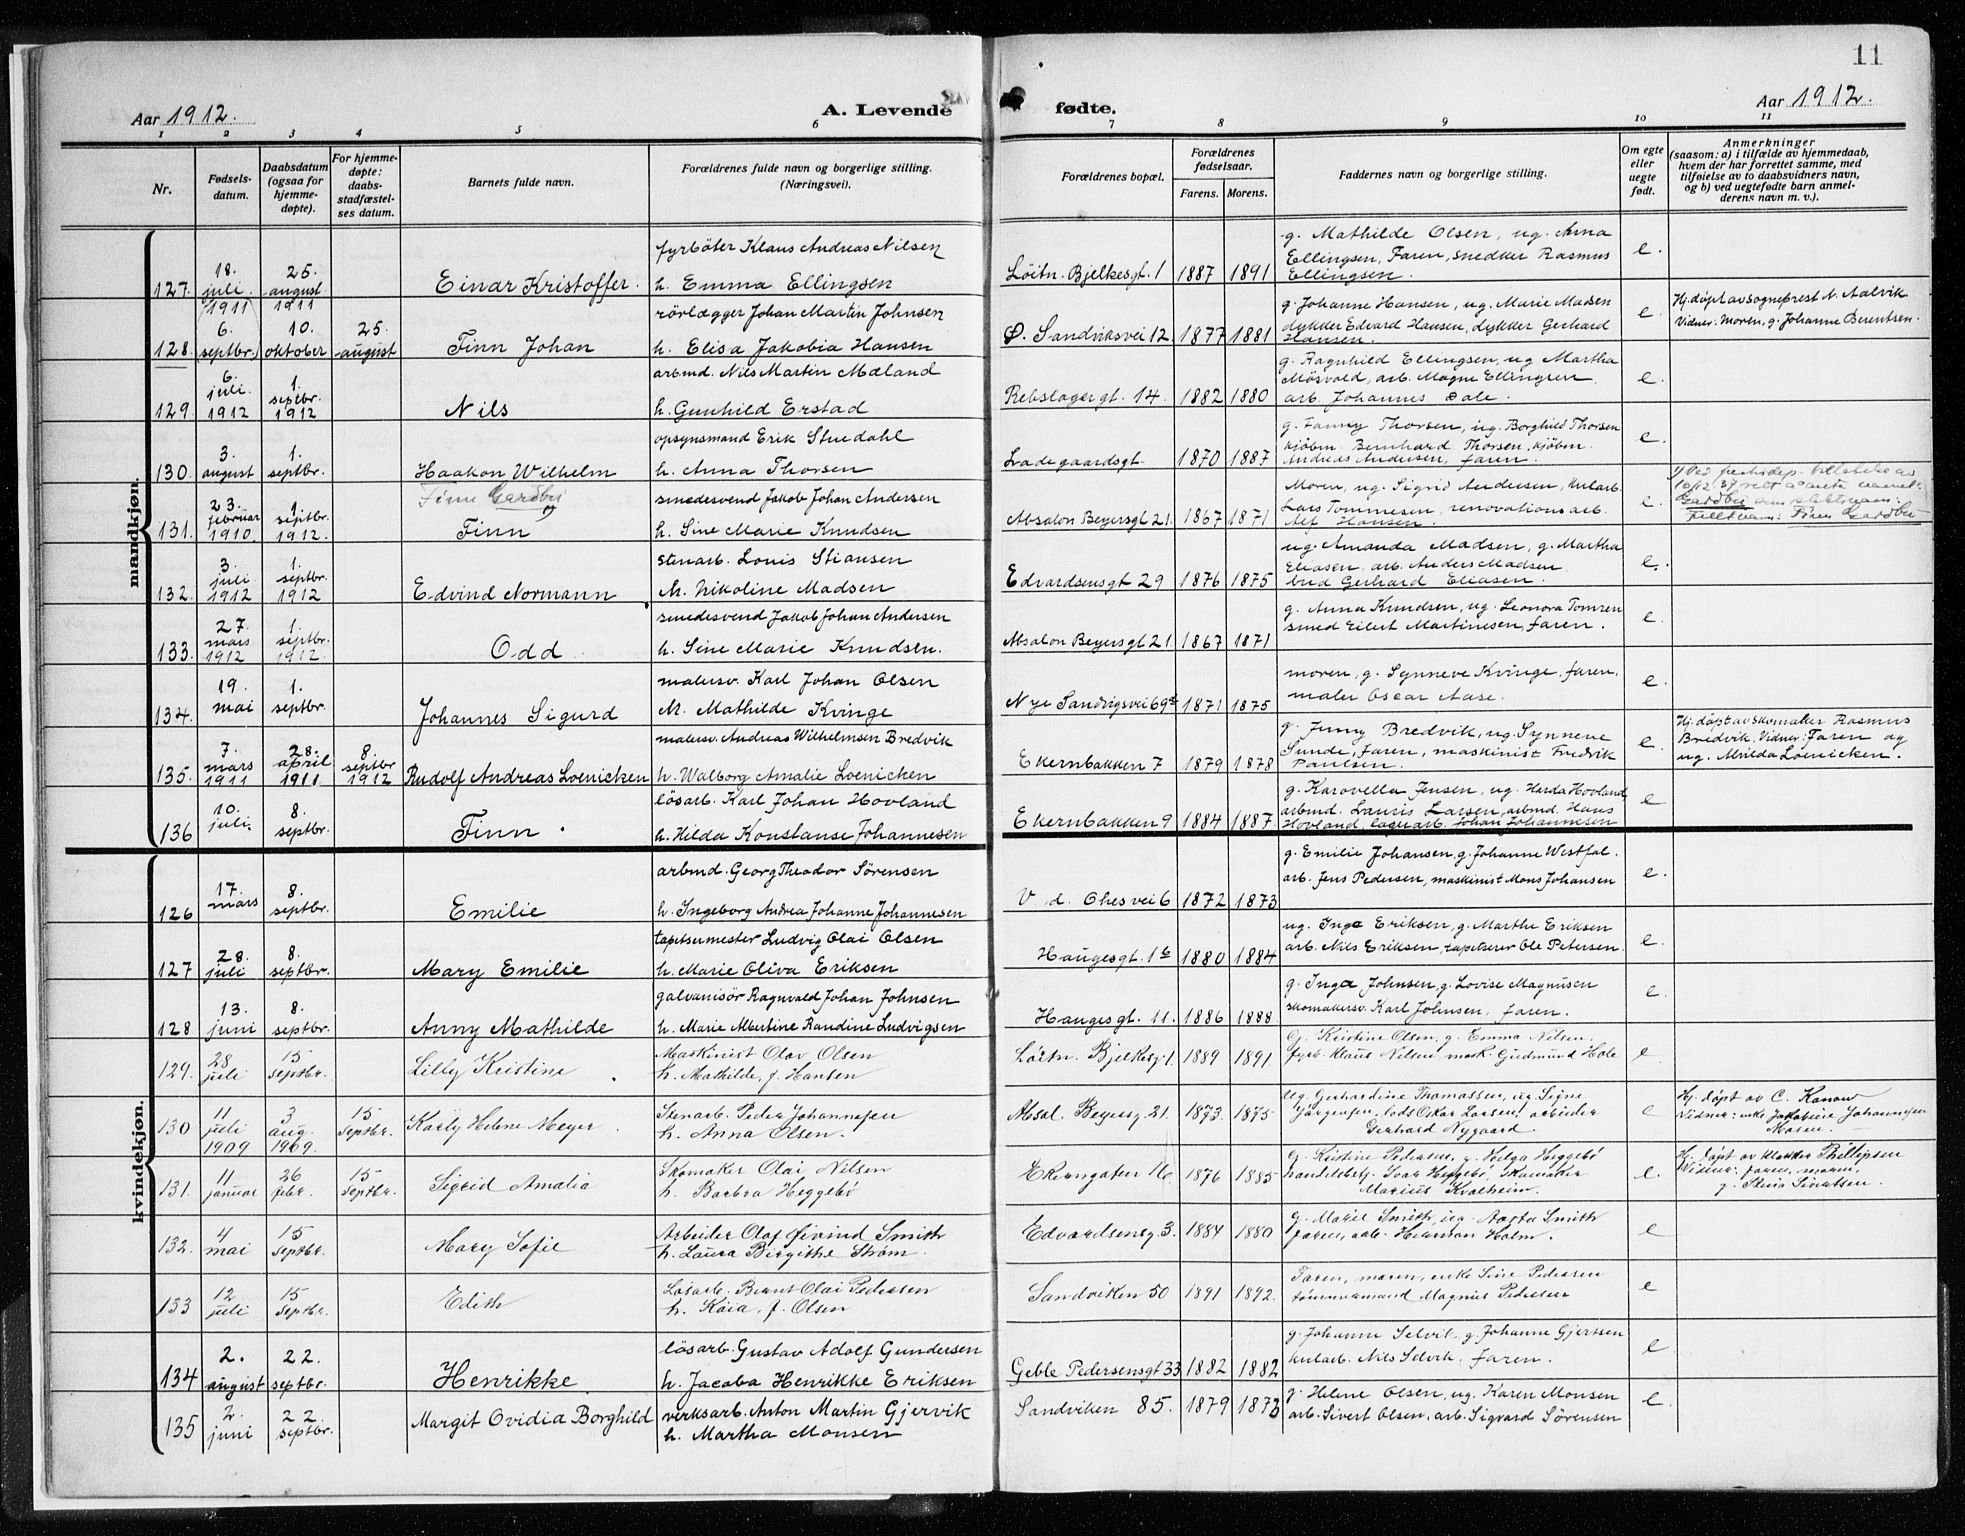 11
Aar 1912.
A. Levende
fødte.
Aar 1912.
1 2 3 4 5 6 7 8 9 10 11
Nr.
Fødsels-
datum.
Daabsdatum
(ogsaa for
hjemme-
døpte).
For hjemme-
døpte:
daabs-
stadfæstel-
ses datum.
Barnets fulde navn.
Forældrenes fulde navn og borgerlige stilling.
(Næringsvei).
Forældrenes bopæl.
Forældrenes
fødselsaar.
Farens. Morens.
Faddernes navn og borgerlige stilling.
Om egte
eller
uegte
født.
Anmerkninger
(saasom: a) i tilfælde av hjemmedaab,
hvem der har forrettet samme, med
tilføielse av to daabsvidners navn,
og b) ved uegtefødte barn anmel-
derens navn m. v.).
mandkjøn.
127. 18. juli 1911 25. august 1911 Einar Kristoffer.
fyrbøter Klaus Andreas Nilsen
h. Emma Ellingsen
Løitn. Bjelkesgt. 1 1887 1891
g. Mathilde Olsen, ug. Anna
Ellingsen, Faren, snedker Rasmus
Ellingsen.
e.
128. 6. septbr. 10. oktober 25. august Finn Johan
rørlægger Johan Martin Johnsen
h. Elisa Jakobia Hansen
Ø. Sandviksvei 12 1877 1881
g. Johanne Hansen, ug. Marie Madsen
dykker Edvard Hansen, dykker Gerhard
Hansen.
e.
Hj. døpt av sogneprest N. Aalvik
Vidner: Moren, g. Johanne Berentsen.
129. 6. juli 1912 1. septbr. 1912 Nils
arbmd. Nils Martin Mæland
h. Gunhild Erstad
Rebslagergt. 14. 1882 1880
g. Ragnhild Ellingsen, ug Martha
Møsvold, arb. Magne Ellingsen
arb. Johannes Dale.
e.
130. 3. august 1. septbr. Haakon Wilhelm
opsynsmand Erik Stuedahl
h. Anna Thorsen
Ladegaardsgt. 1870 1887
g. Fanny Thorsen, ug. Borghild Thorsen
kjøbm. Bernhard Thorsen, kjøbm.
Andreas Andersen, faren.
e.
131. 23. februar 1910. 1. septbr. 1912. Finn Gardbu
Finn
smedesvend Jakob Johan Andersen
h. Sine Marie Knudsen
Absalon Beyersgt 21. 1867 1871
Moren, ug. Sigrid Andersen, kularb.
Lars Tommesen, renovationsarb.
Alf Hansen.
e.
132. 3. juli 1912 1. septbr. 1912 Edvind Normann
stenarb. Louis Stiansen
h. Nikoline Madsen
Edvardsensgt 29 1876 1875
ug. Amanda Madsen, g. Martha
Eliasen, arb. Anders Madsen
bud Gerhard Eliasen.
e.
133. 27. mars 1912 1. septbr. 1912. Odd
smedesvend Jakob Johan Andersen
h. Sine Marie Knudsen.
Absalon Beyersgt 21. 1867 1871
g. Anna Knudsen, ug. Leonora Tomren
smed Eilert Martinesen, faren.
e.
134. 19. mai 1. septbr. Johannes Sigurd
malersv. Karl Johan Olsen
h. Mathilde Kvinge
Nye Sandvigsvei 69 1871 1875
moren, g. Synneve Kvinge, faren.
maler Oscar Aase.
e.
135. 7. mars 1911 28. april 1911 8. septbr 1912 Rudolf Andreas Loenicken
malersv. Andreas Wilhelmsen Bredvik
h. Walborg Amalie Loenicken
Ekernbakken 7 1879 1878
g. Jenny Bredvik, ug. Synneve
Sunde, faren, maskinist Fredrik
Paulsen.
e.
Hj. døpt av skomaker Rasmus
Bredvik. Vidner: Faren og
ug. Milda Loenicken.
136 10. juli. 8. septbr. Finn.
løsarb. Karl Johan Hovland
h. Hilda Konstanse Johannesen
Ekernbakken 9 1884 1887.
g. Karovella Jensen, ug. Harda Hovland
arbmd. Lauris Larsen, arbmd. Hans
Hovland, lagerarb. Johan Johannesen
e
kvindekjøn.
126 17. mars 8. septbr. Emilie
arbmd. Georg Theodor Sørensen
h. Ingeborg Andrea Johanne Johannesen
V. d. Ohesvei 6 1872 1873
g. Emilie Johansen, g. Johanne Westfal.
arb. Jens Pedersen, maskinist Mons Johansen
e.
127 28. juli 8. septbr. Mary Emilie
tapetsermester Ludvig Olai Olsen
h. Marie Oliva Eriksen
Haugesgt. 1b 1880 1884
ug. Inga Eriksen, g. Marthe Eriksen
arb. Nils Eriksen, tapetserer Ole Petersen.
e.
128 13. juni 8. septbr. Anny Mathilde
galvanisør Ragnvald Johan Johnsen
h. Marie Albertine Randine Ludvigsen
Haugesgt. 11. 1886 1888
g. Inga Johnsen, g. Lovise Magnusen
skomakersv. Karl Johnsen, faren.
e.
129. 28 juli 15 Septbr. Lilly Kristine
Maskinist Olav Olsen
h. Mathilde, f. Hansen
Løitn. Bjelkesg. 1 1889 1891
G. Kristine Olsen, g. Emma Nilsen,
fyrb. Klaus Nilsen mask. Gudmund Hole
e.
130 11 juli 1909 3 aug. 1909. 15 Septbr. Karly Helene Meyer
Stenarb. Peder Johannesen
h. Anna Olsen.
Absal. Beyersg. 21. 1873. 1875
Ug. Gerhardine Thomassen, ug. Signe
Jørgensen, lods Oskar Larsen, arbeider
Gerhard Nygaard.
e
Hj. døpt av C. Kanow
Vidner: enke Jakobine Johannesen
131. 11 januar 26 febr. 15 Septbr. Sigrid Amalia
Skomaker Olai Nilsen
h. Barbra Heggebø
Ekerngaten 16 1876 1885
G. Kristine Pedersen, g. Helga Heggebø
handelsbetj. Ivar Heggebø, skomaker
Marius Kvalheim.
e.
Hj. døpt av klokker Phillipsen
Vidner: faren, moren,
132. 4 mai 15 Septbr. Mary Sofie
Arbeider Olaf Øivind Smith
h. Laura Birgithe Strøm.
Edvardsensg. 3. 1884 1880
g. Marie Smith, ug. Aasta Smith
faren, arb. Herman Holm.
e
133 12 juli 15 Septbr. Edith
Løsarb. Bernt Olai Pedersen
h. Kaia, f. Olsen
Sandviken 50 1891 1892.
Faren, moren, enke Sine Pedersen
tømmermand Magnus Pedersen
e
134 2. august 22. septbr. Henrikke
løsarb. Gustav Adolf Gundersen
h. Jacoba Henrikke Eriksen
Geble Pedersensgt 33 1882 1882
g. Johanne Selvik, g. Johanne Gjerssen
kularb. Nils Selvik, faren.
e
135 2. juni 22. septbr. Margit Ovidia Borghild
verksarb. Anton Martin Gjervik
h. Martha Monsen
Sandviken 85. 1879 1873
g. Helene Olsen, ug. Karen Monsen
arb. Sivert Olsen, arb. Sigvard Sørensen
e.